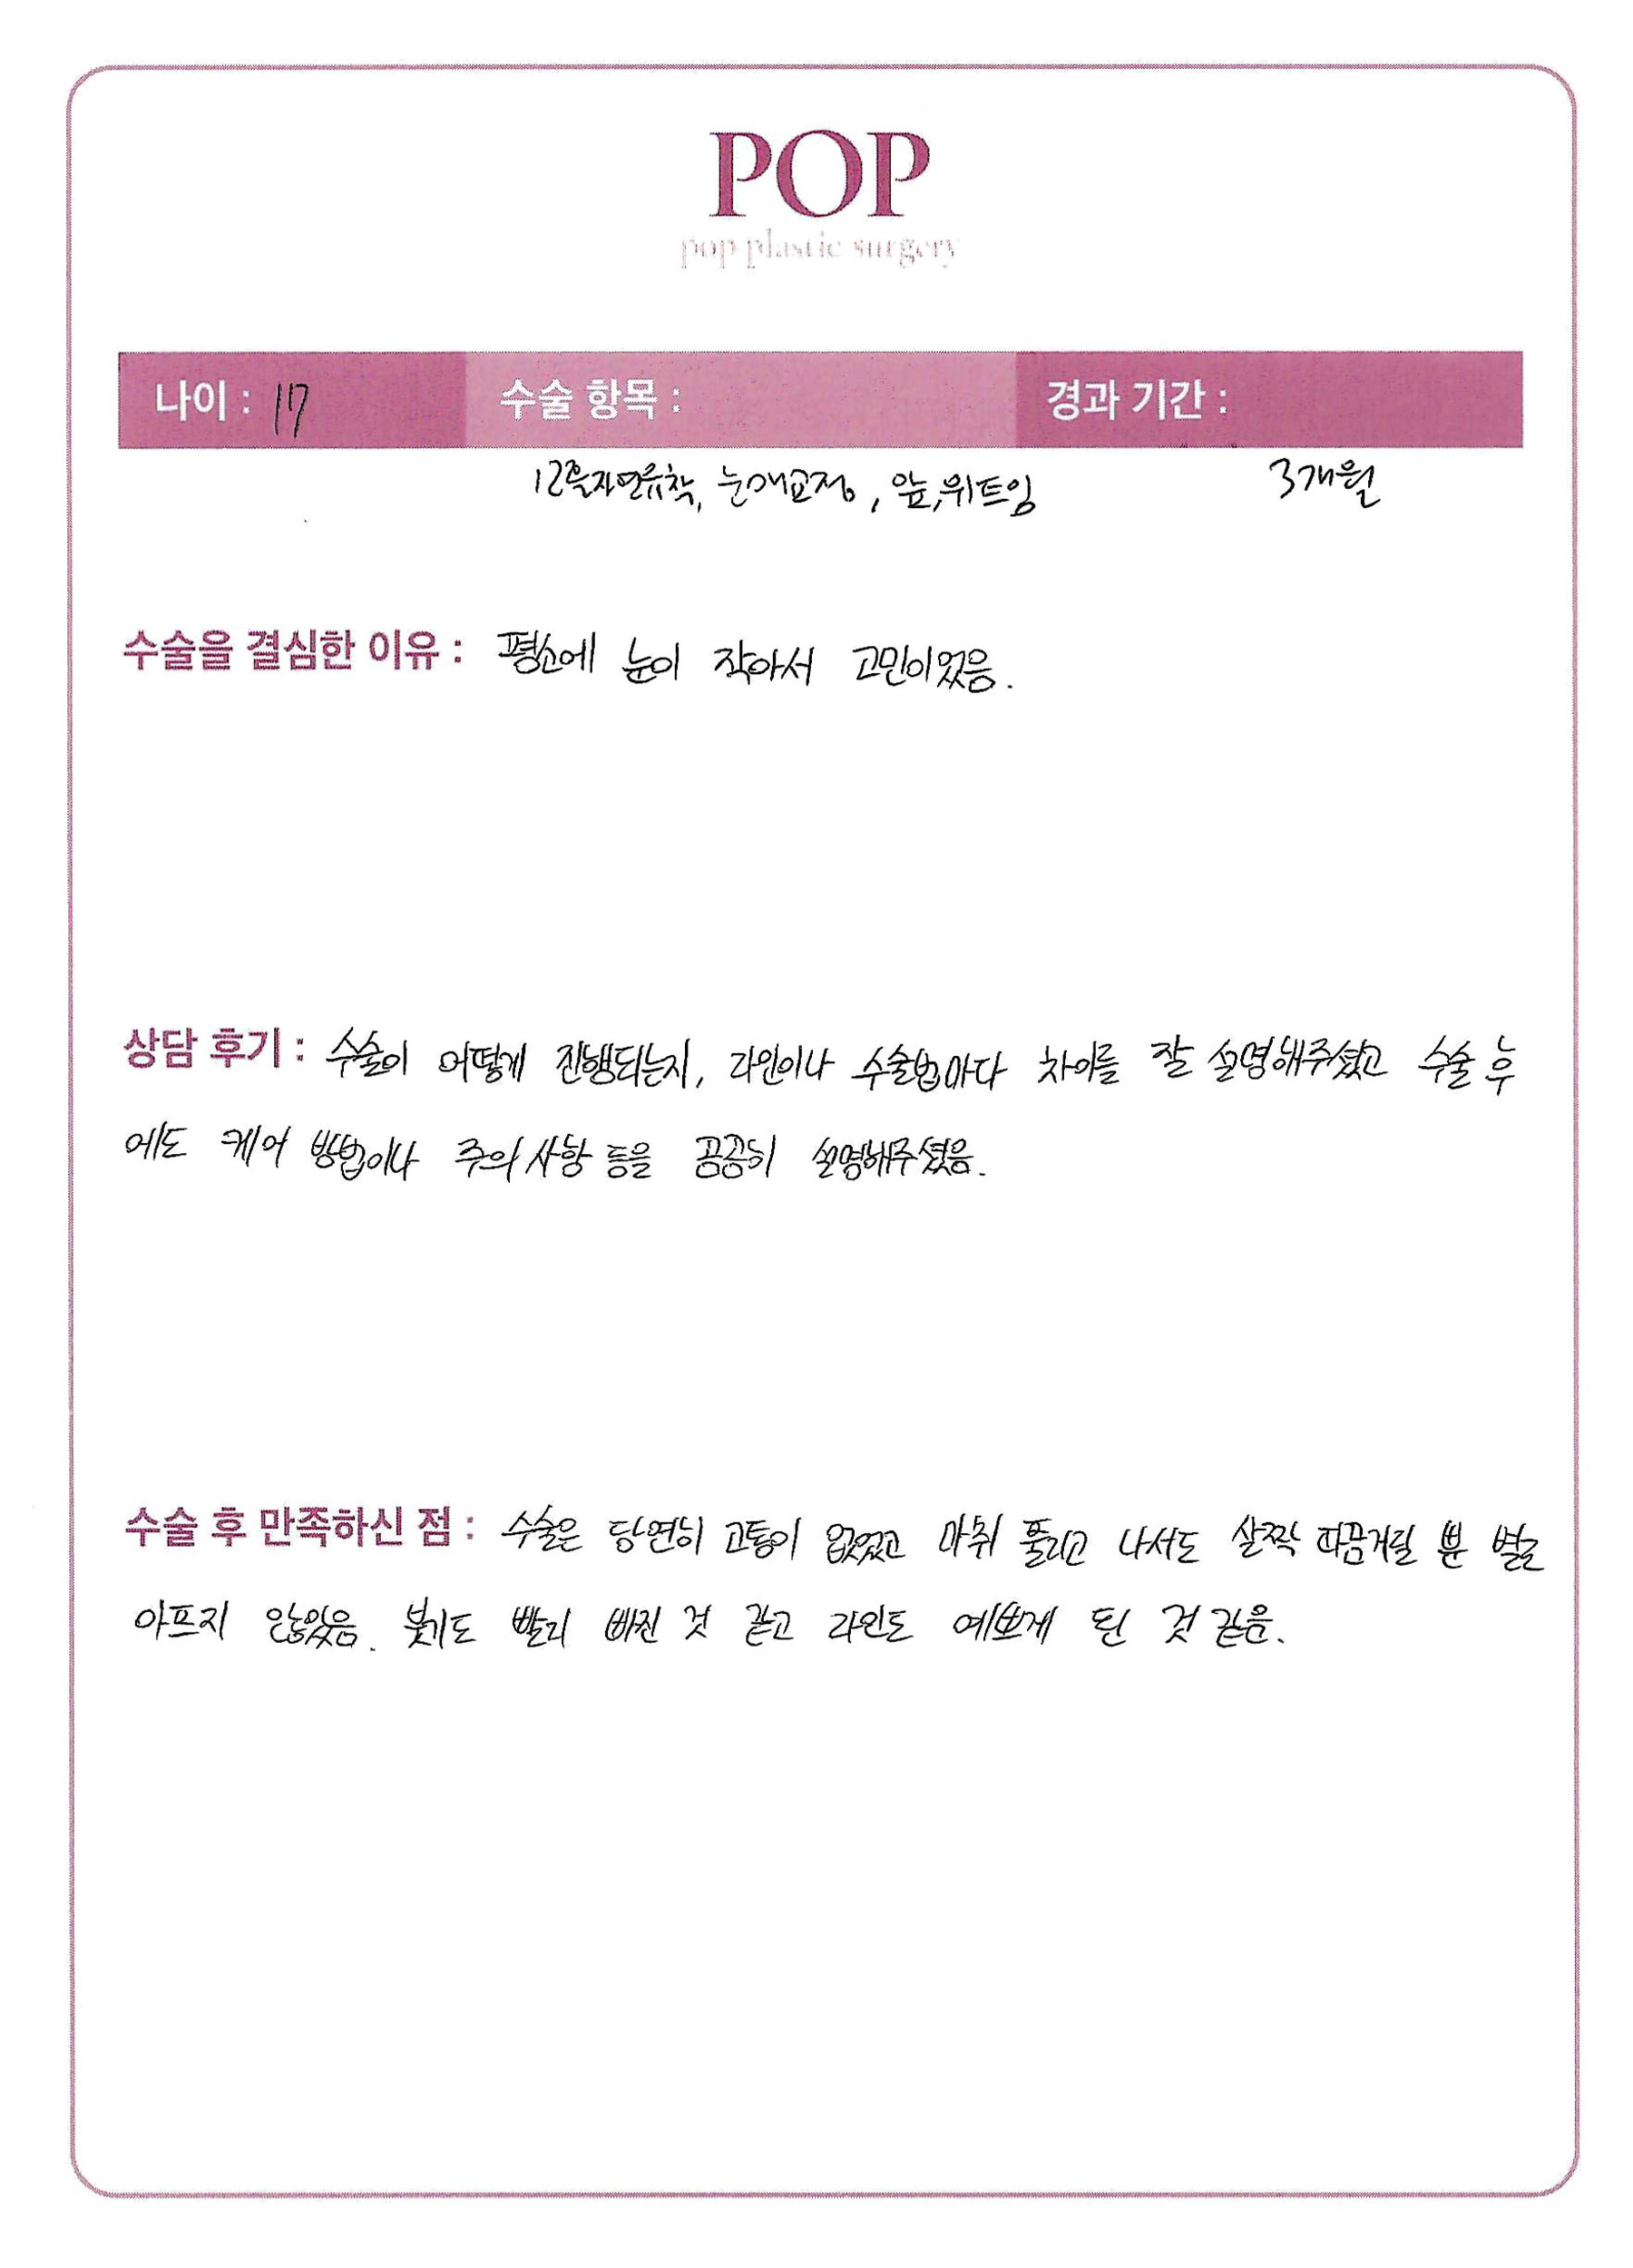 POP
pop plastic surgery
나이 : 17 수술 항목 : 경과 기간 :
12줄자연유착, 눈매교정, 앞,위트임 3개월
수술을 결심한 이유 : 평소에 눈이 작아서 고민이었음.
상담 후기 : 수술이 어떻게 진행되는지, 라인이나 수술법마다 차이를 잘 설명해주셨고 수술 후
에도 케어 방법이나 주의사항 등을 꼼꼼히 설명해주셨음.
수술 후 만족하신 점 : 수술은 당연히 고통이 없었고 마취 풀리고 나서도 살짝 따끔거릴 뿐 별로
아프지 않았음. 붓기도 빨리 빠진 것 같고 라인도 예쁘게 된 것 같음.